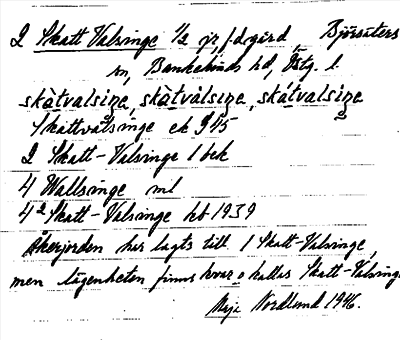 2 Skatt Valsinge 1/2 jr jdgård Björsäters
sn, Bankekinds hd, Östg. l
skàtvalsiŋe, skàtvàlsiŋe, skátvalsiŋe
Skattvalsinge ek 9 45
2 Skatt-Valsinge 1 bek
4 Wallsinge ml
4² Skatt-Valsinge kb 1939
Åkerjorden har lagts till 1 Skatt-Valsinge,
men lägenheten finns kvar o kallas Skatt-Valsinge
Maja Nordlund 1946.